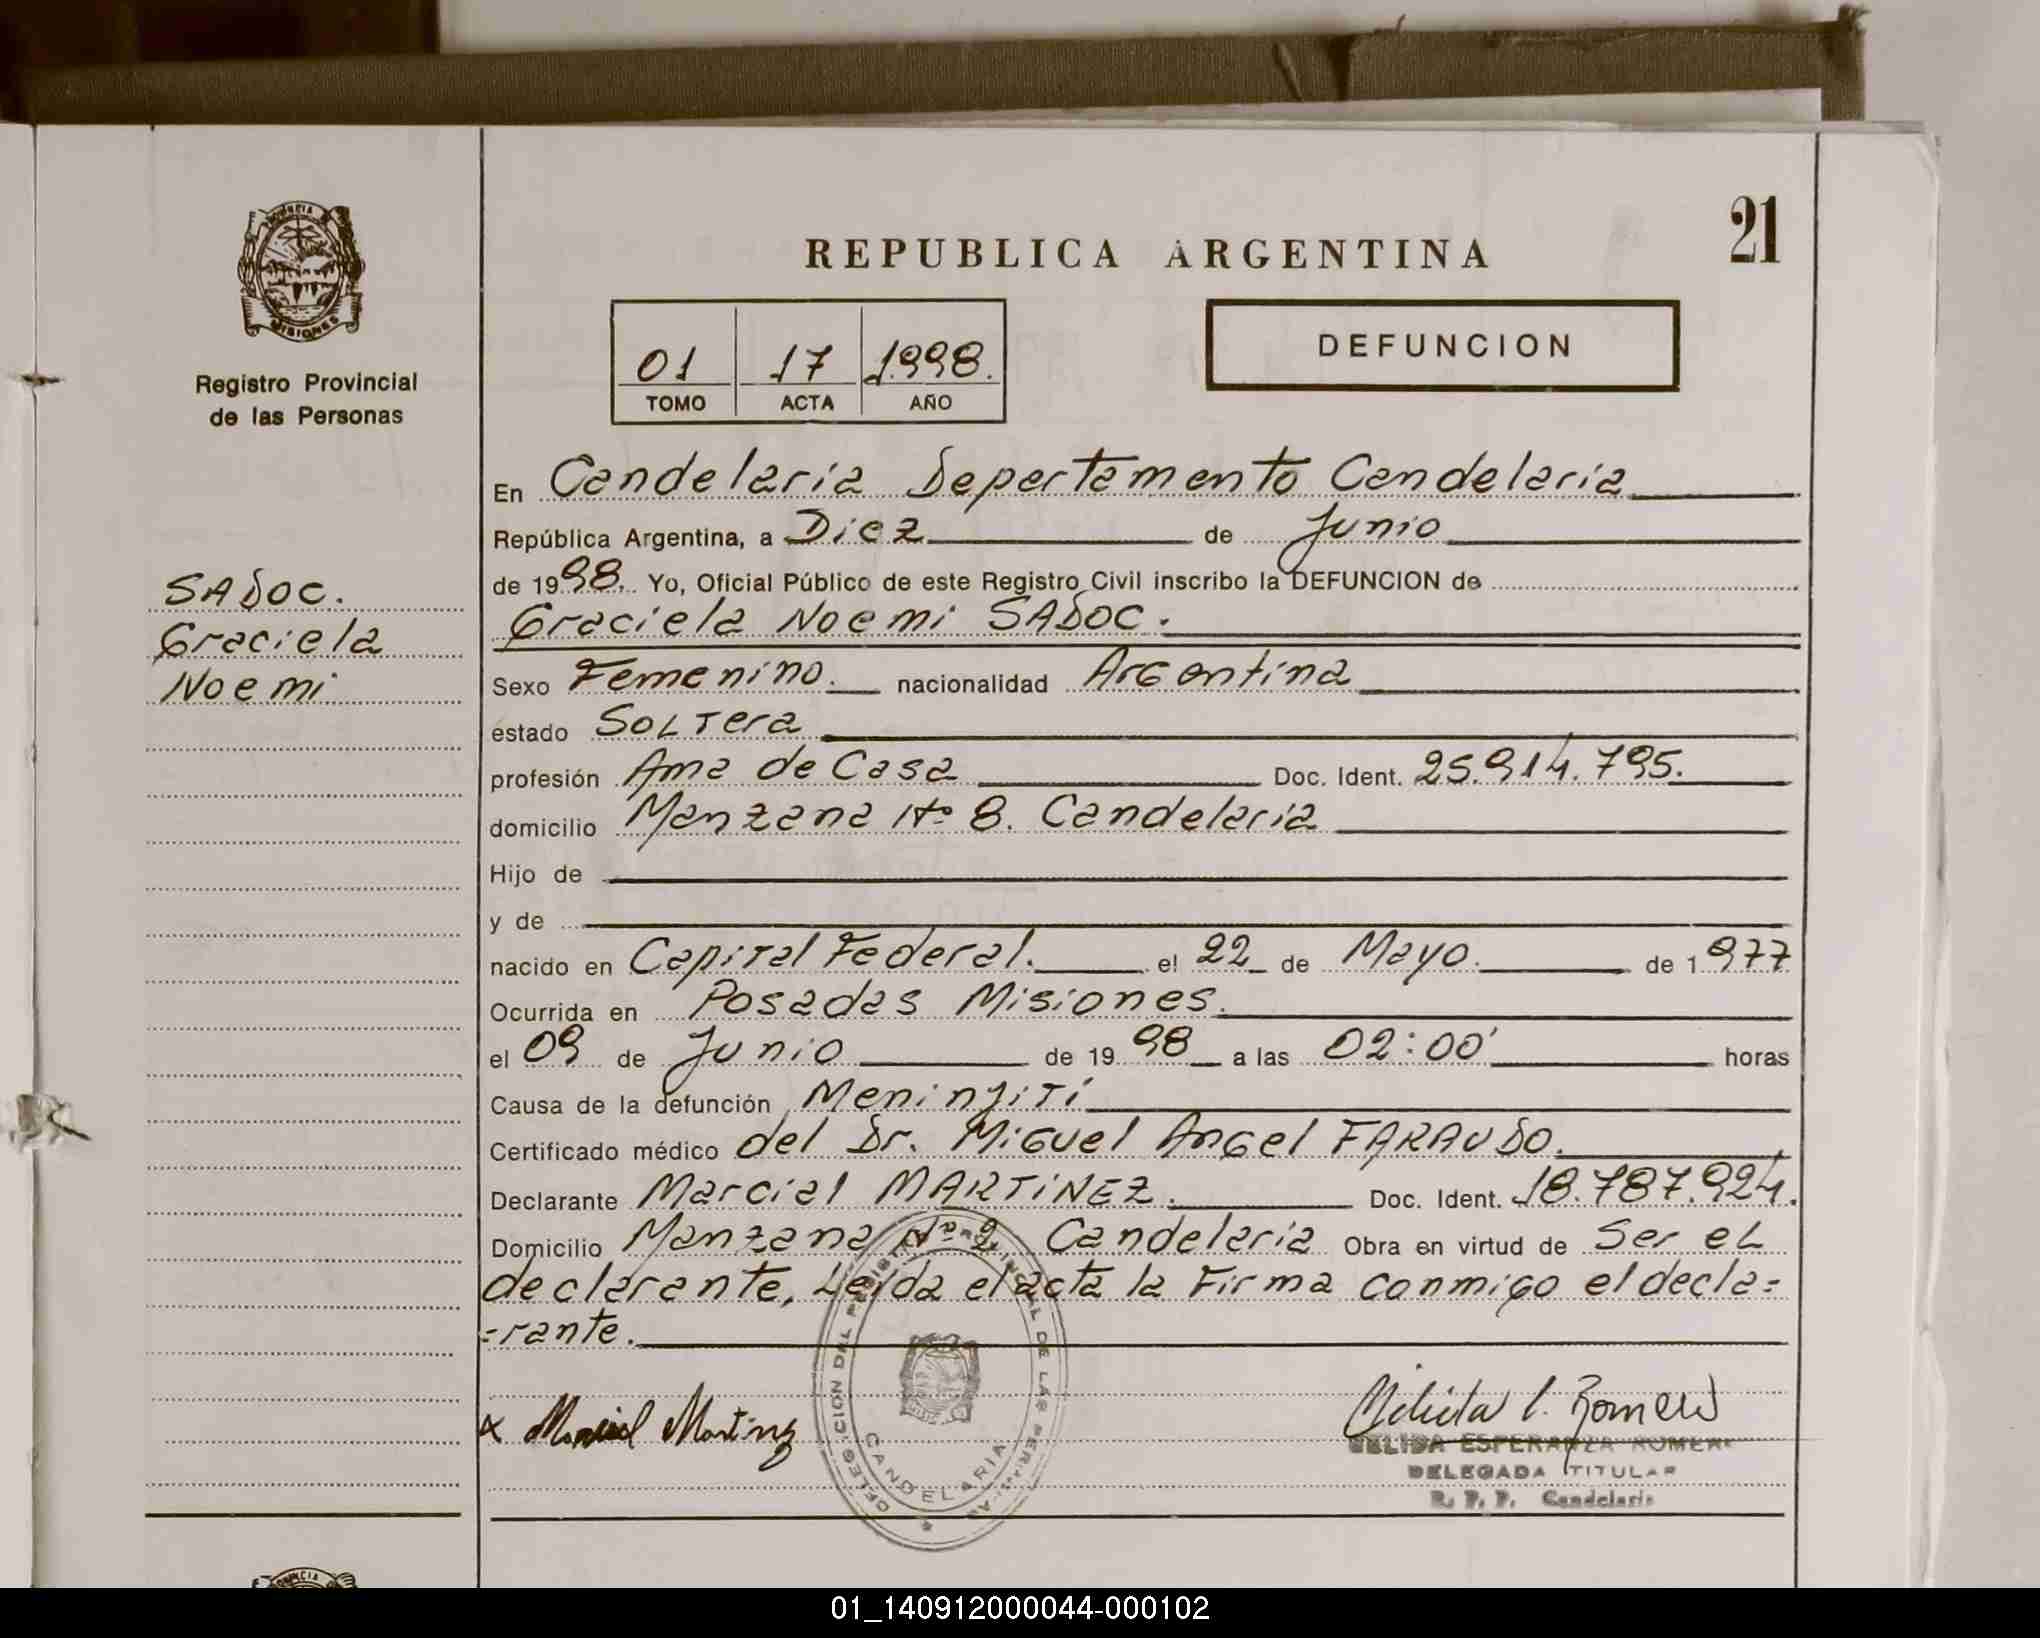 REPUBLICA ARGENTINA
21
PROVINCIA DE
MISIONES
Registro Provincial
de las Personas
01 17 1998.
TOMO ACTA AÑO
DEFUNCION
En Candelaria Departamento Candelaria
República Argentina, a Diez de Junio
de 1998. Yo, Oficial Público de este Registro Civil inscribo la DEFUNCION de
Graciela Noemi SADOC.
SADOC.
Graciela
Noemi
Sexo Femenino. nacionalidad Argentina
estado SOLTera
profesión Ama de Casa Doc. Ident. 25.914.795.
domicilio Manzana Nº 8. Candelaria
Hijo de
y de
nacido en Capital Federal. el 22 de Mayo. de 1977
Ocurrida en Posadas Misiones.
el 09 de Junio de 1998 a las 02:00' horas
Causa de la defunción Meninjiti
Certificado médico del Dr. Miguel Angel FARAUDO.
Declarante Marcial MARTINEZ. Doc. Ident. 18.787.924.
Domicilio Manzana Nº 2 Candelaria Obra en virtud de Ser el
declarante, Leida el acta la Firma conmigo el decla=
=rante.
x Marcial Martinez
DELEGACION DEL REGISTRO PROVINCIAL DE LAS PERSONAS
CANDELARIA
Nelida E. Romero
NELIDA ESPERANZA ROMERO
DELEGADA TITULAR
R. P. P. Candelaria
01_140912000044-000102